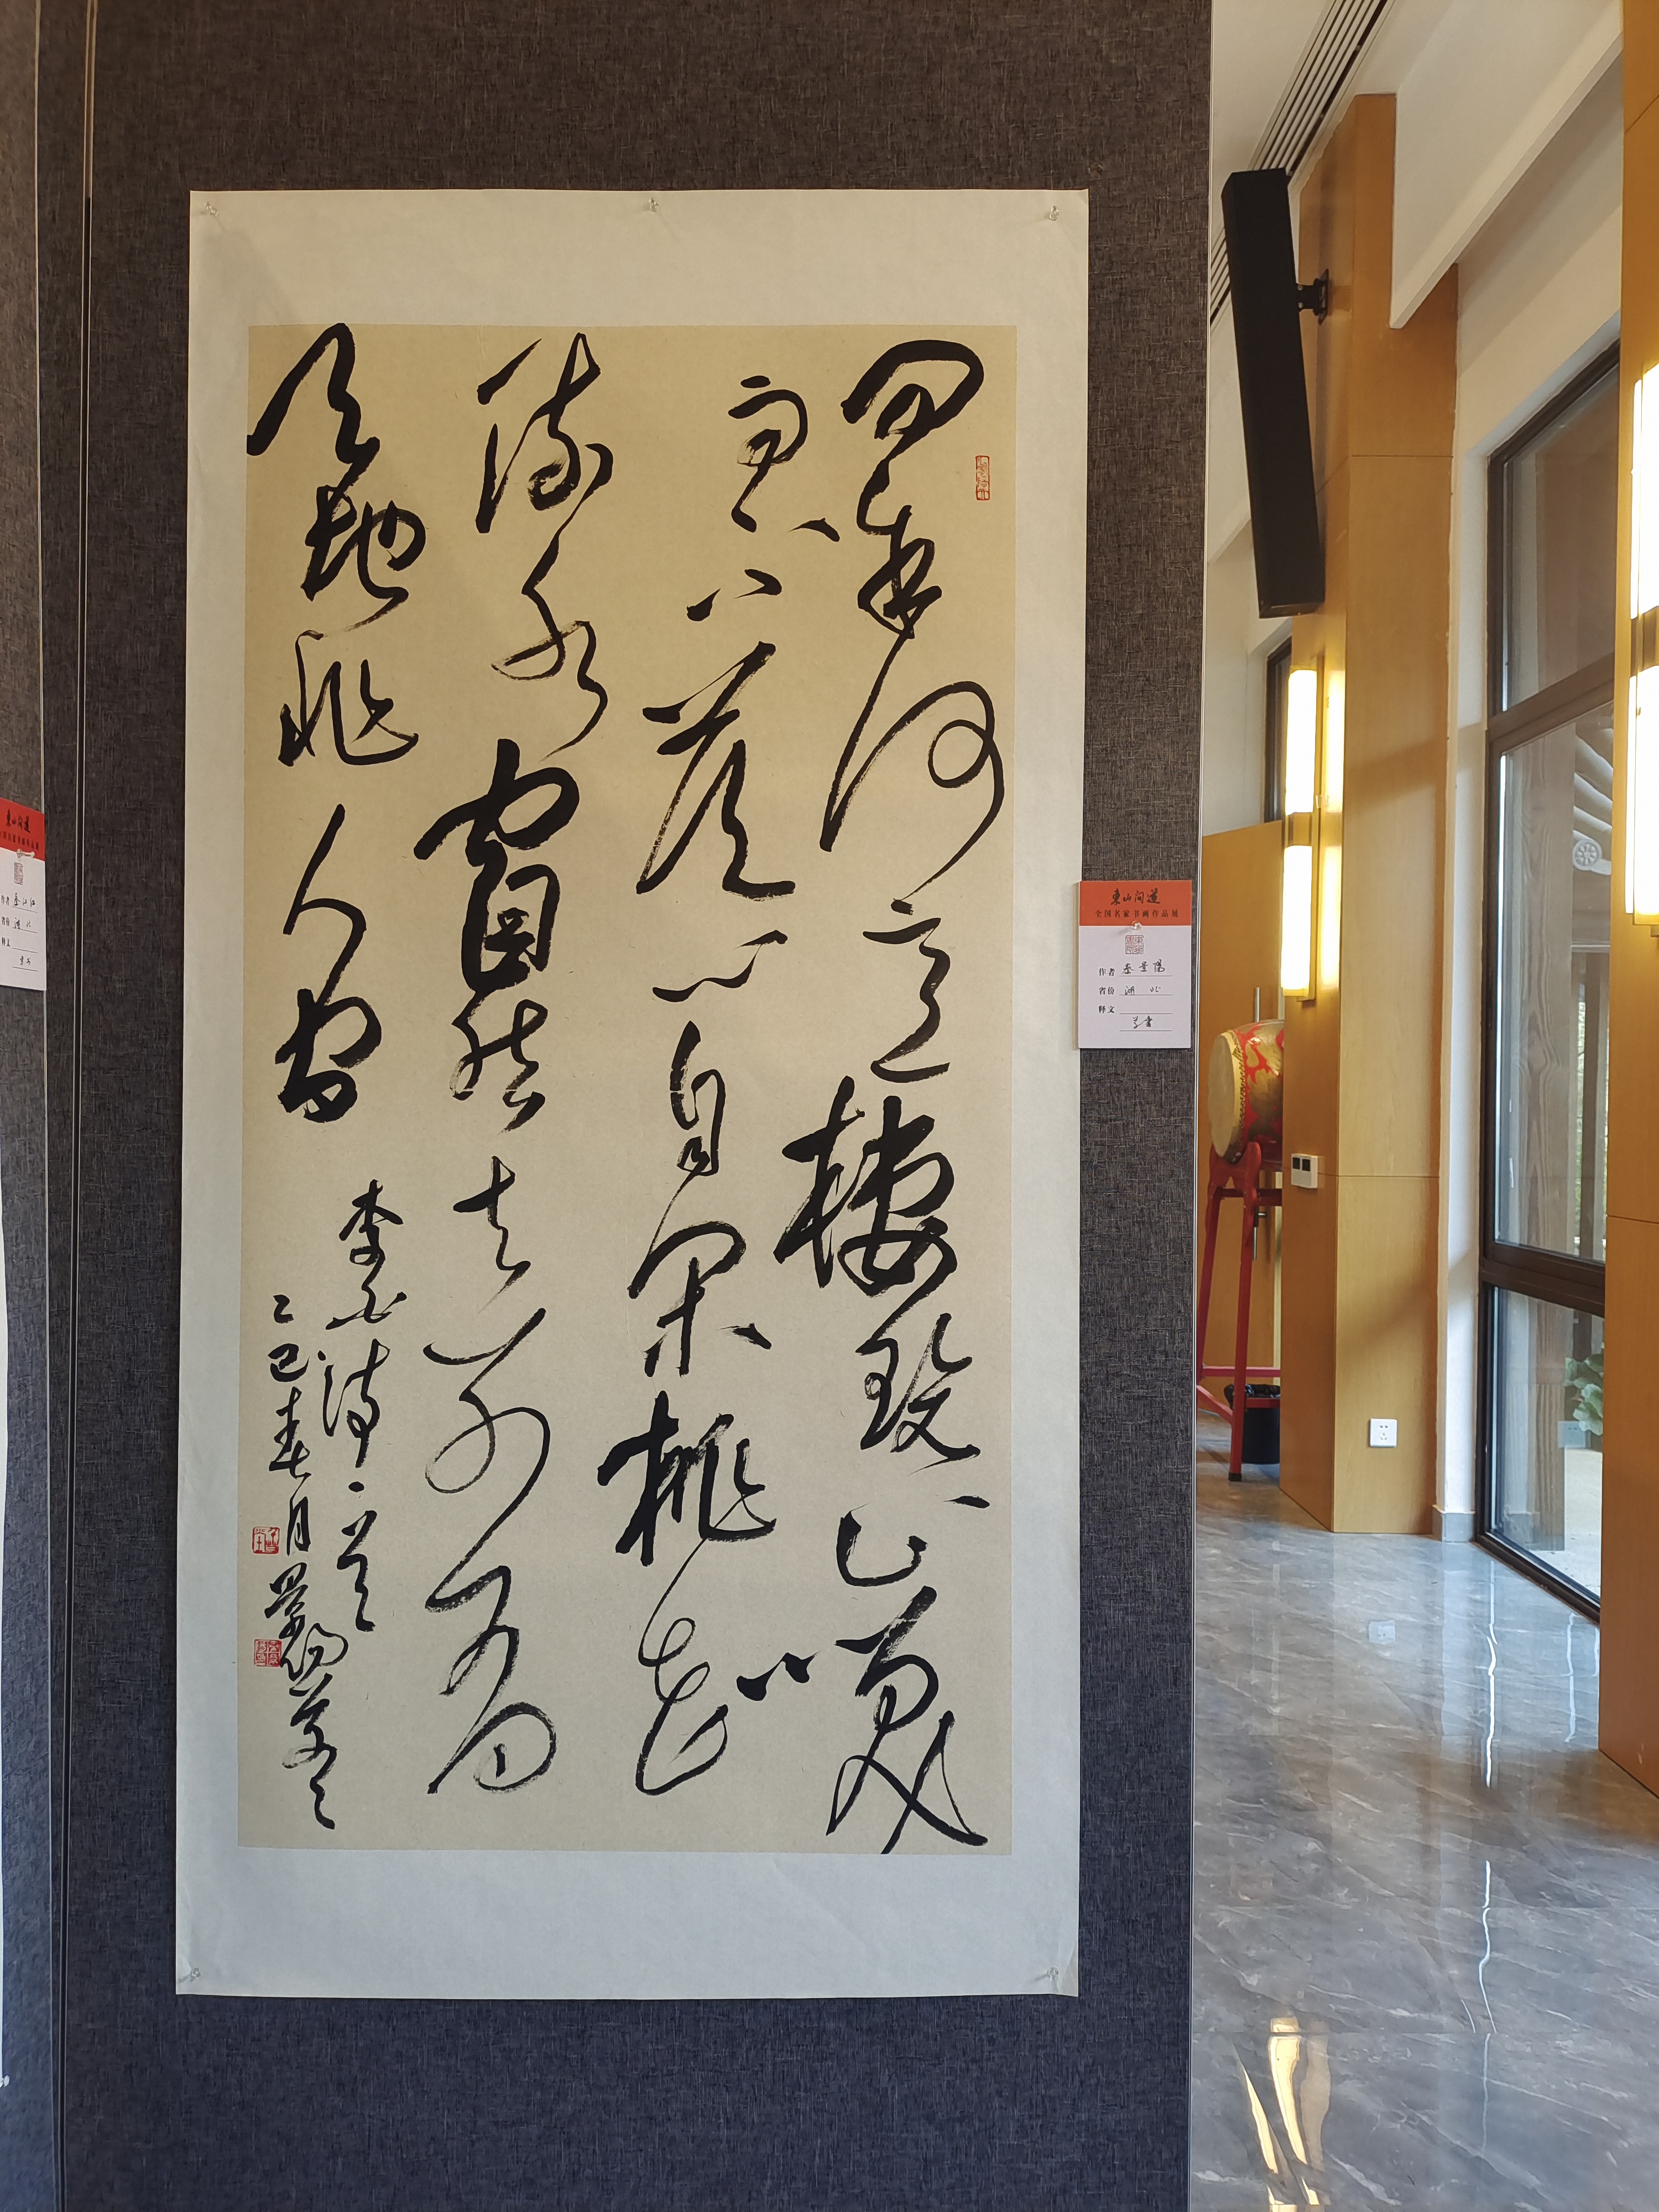 問余何意棲碧山笑
而不答心自閑桃花
流水窅然去別有
天地非人間
李白詩一首
乙巳春月景陽
東山问道
全国名家书画作品展
作者 秦景陽
省份 湖北
释文
草書
東山问道
作者
省份 湖北
释文